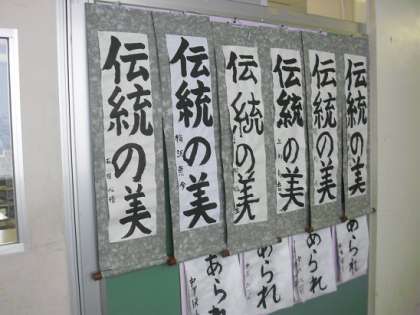 伝統の美
伝統の美
伝統の美
伝統の美
伝統の美
伝統の美
あられ
あられ
あられ
あられ